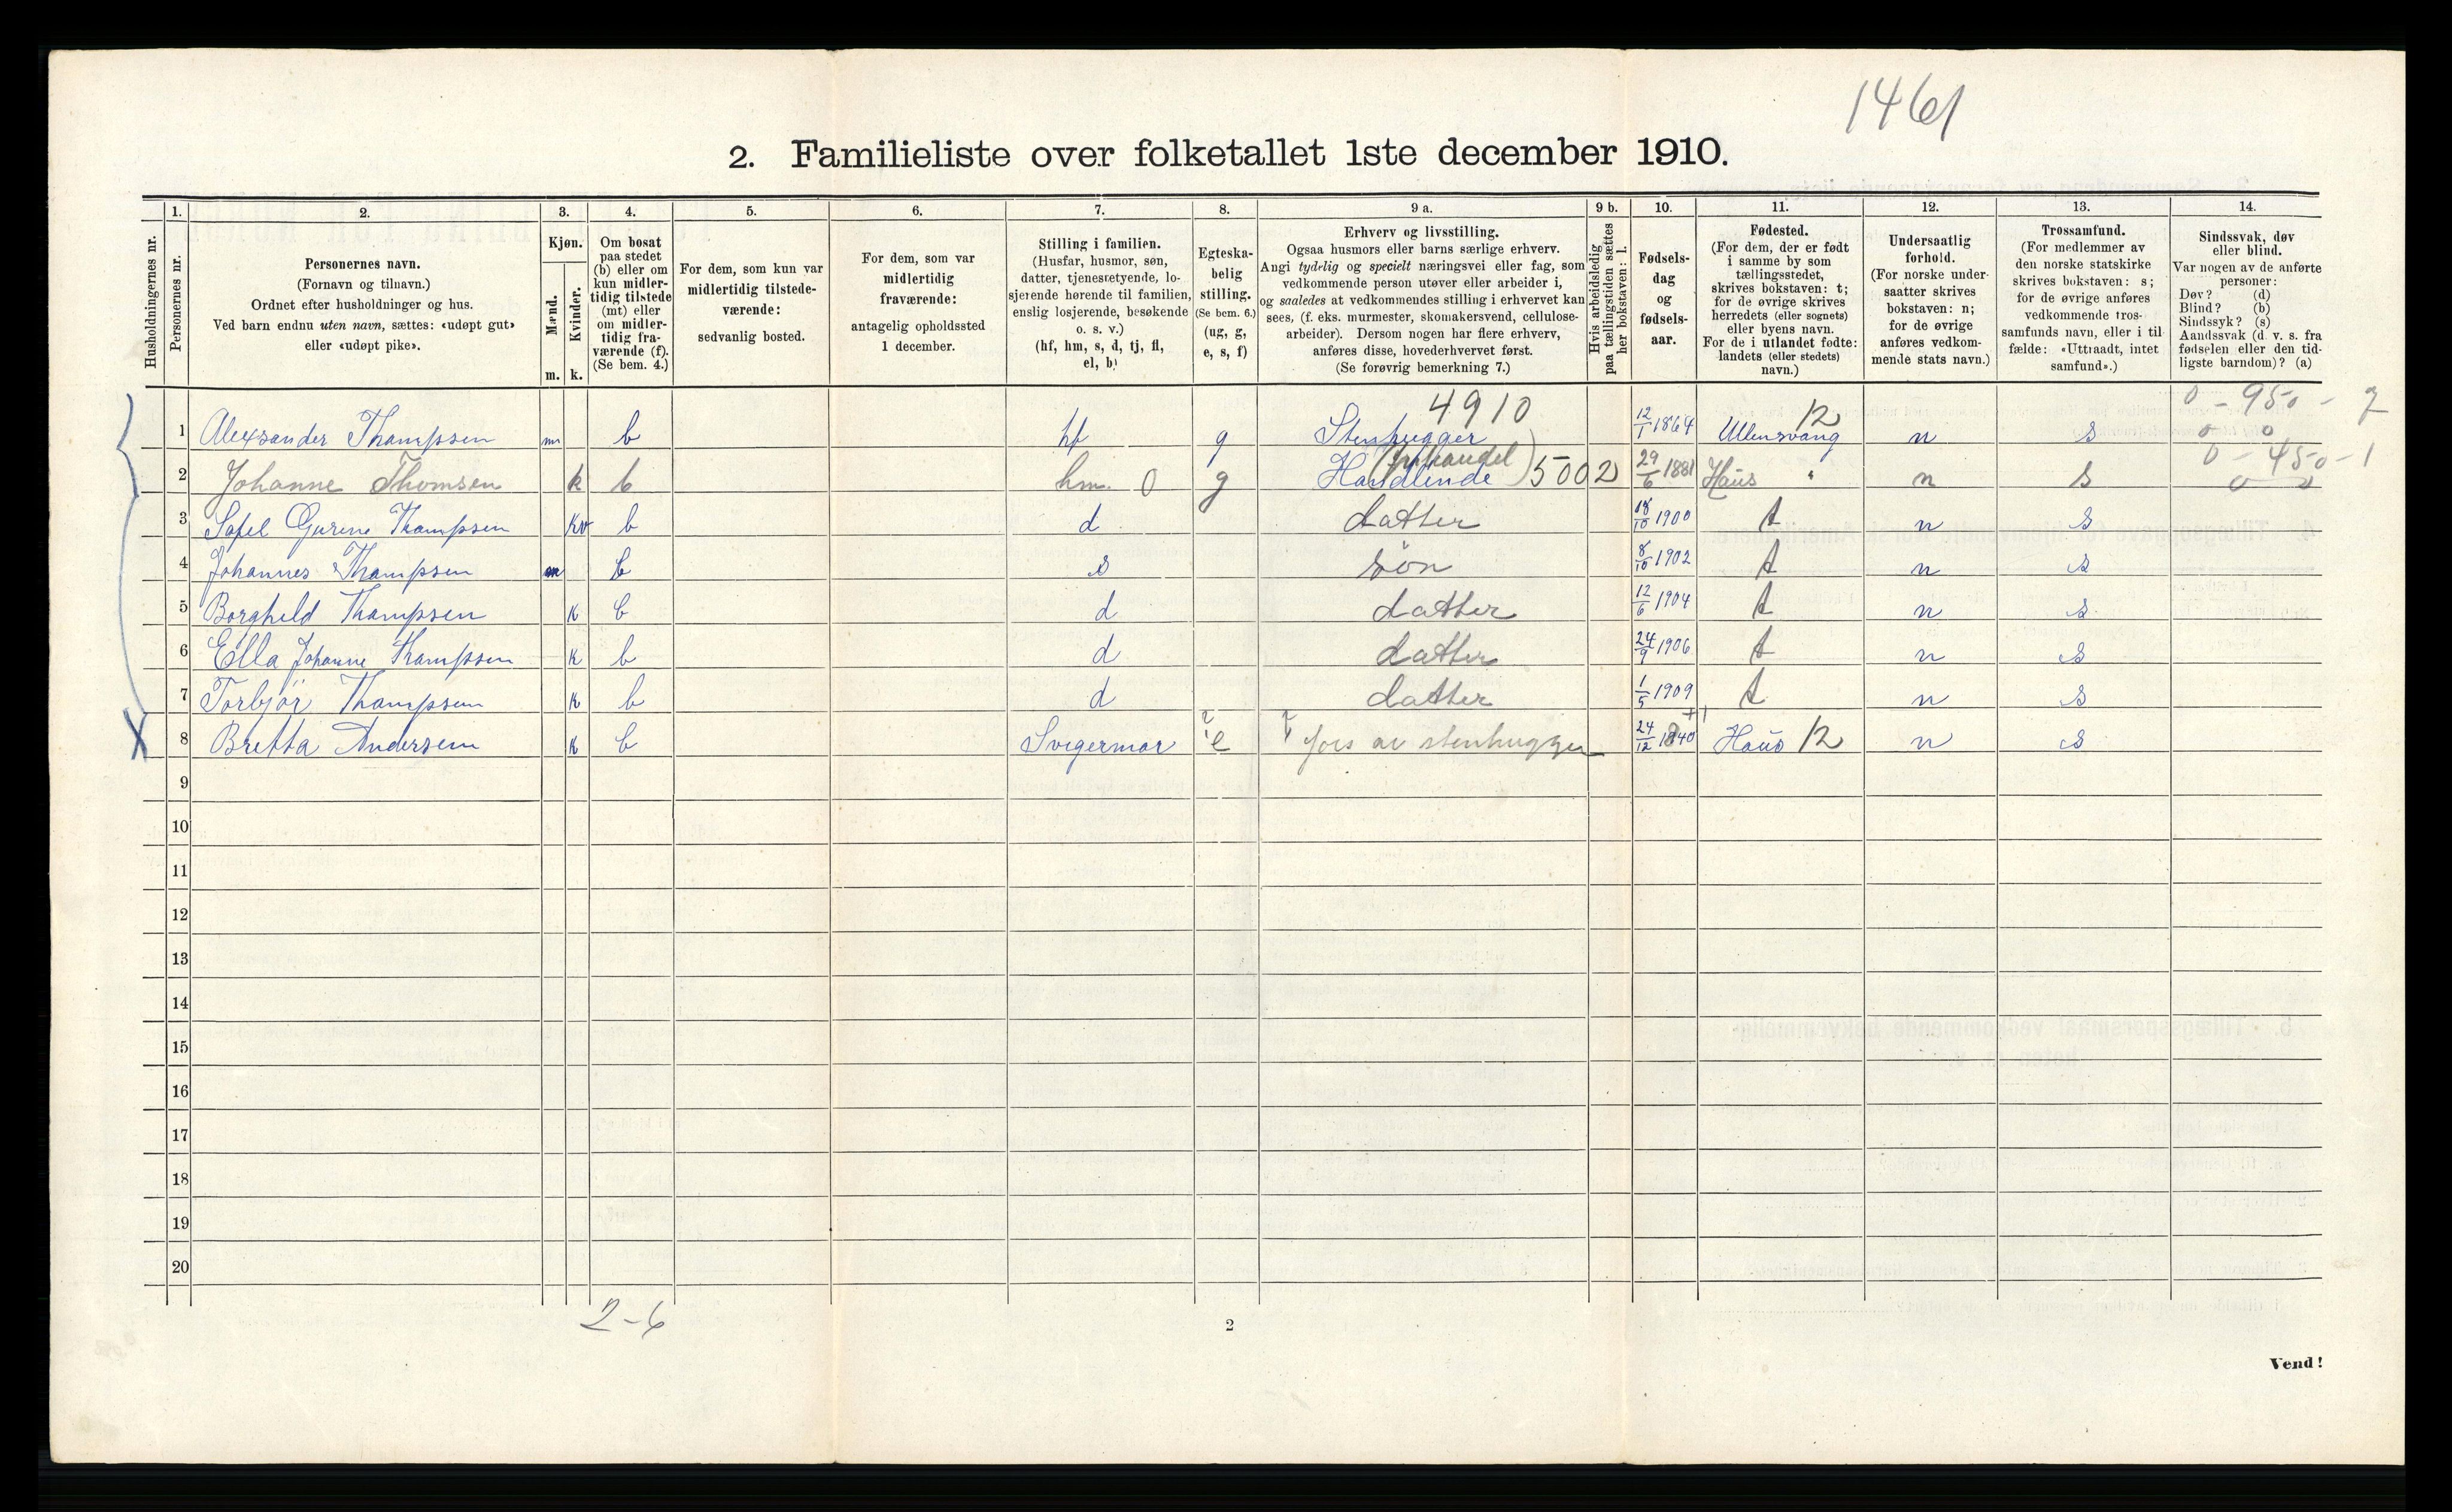 1461
2. Familieliste over folketallet 1ste december 1910.
1. 2. 3. 4. 5. 6. 7. 8. 9 a. 9 b. 10. 11. 12. 13. 14.
Husholdningernes nr.
Personernes nr.
Personernes navn.
(Fornavn og tilnavn.)
Ordnet efter husholdninger og hus.
Ved barn endnu uten navn, sættes: «udøpt gut»
eller «udøpt pike».
Kjøn.
Mænd.
Kvinder.
m. k.
Om bosat
paa stedet
(b) eller om
kun midler-
tidig tilstede
(mt) eller
om midler-
tidig fra-
værende (f).
(Se bem. 4.)
For dem, som kun var
midlertidig tilstede-
værende:
sedvanlig bosted.
For dem, som var
midlertidig
fraværende:
antagelig opholdssted
1 december.
Stilling i familien.
(Husfar, husmor, søn,
datter, tjenestetyende, lo-
sjerende hørende til familien,
enslig losjerende, besøkende
o. s. v.)
(hf, hm, s, d, tj, fl,
el, b)
Egteska-
belig
stilling.
(Se bem. 6.)
(ug, g,
e, s, f)
Erhverv og livsstilling.
Ogsaa husmors eller barns særlige erhverv.
Angi tydelig og specielt næringsvei eller fag, som
vedkommende person utøver eller arbeider i,
og saaledes at vedkommendes stilling i erhvervet kan
sees, (f. eks. murmester, skomakersvend, cellulose-
arbeider). Dersom nogen har flere erhverv,
anføres disse, hovederhvervet først.
(Se forøvrig bemerkning 7.)
Hvis arbeidsledig
paa tællingstiden sættes
her bokstaven: l.
Fødsels-
dag
og
fødsels-
aar.
Fødested.
(For dem, der er født
i samme by som
tællingsstedet,
skrives bokstaven: t;
for de øvrige skrives
herredets (eller sognets)
eller byens navn.
For de i utlandet fødte:
landets (eller stedets)
navn.)
Undersaatlig
forhold.
(For norske under-
saatter skrives
bokstaven: n;
for de øvrige
anføres vedkom-
mende stats navn.)
Trossamfund.
(For medlemmer av
den norske statskirke
skrives bokstaven: s;
for de øvrige anføres
vedkommende tros-
samfunds navn, eller i til-
fælde: «Uttraadt, intet
samfund».)
Sindssvak, døv
eller blind.
Var nogen av de anførte
personer:
Døv? (d)
Blind? (b)
Sindssyk? (s)
Aandssvak (d. v. s. fra
fødselen eller den tid-
ligste barndom)? (a)
4910 12 0 - 950 - 2
1 Alexsander Thampsen m b hf g Stenhugger 12/1 1864 Ullensvang n s 0 0
0 - 450 - 1
2 Johanne Thomsen k b hm. 0 g Handlende 5002 29/6 1881 Haus " n s
3 Sofel Gurine Thampsen kv b d datter 18/10 1900 t n s
4 Johannes Thampsen m b s søn 8/10 1902 t n s
5 Borghild Thampsen k b d datter 12/6 1904 t n s
6 Ella Johanne Thampsen k b d datter 24/9 1906 t n s
7 Torbjør Thampsen k b d datter 1/5 1909 t n s
X 8 Bretta Andersen k b Svigermor e fors av stenhugger 24/12 1840 Haus 12 n s
9
10
11
12
13
14
15
16
17
18
19
20
2-6
2
Vend!